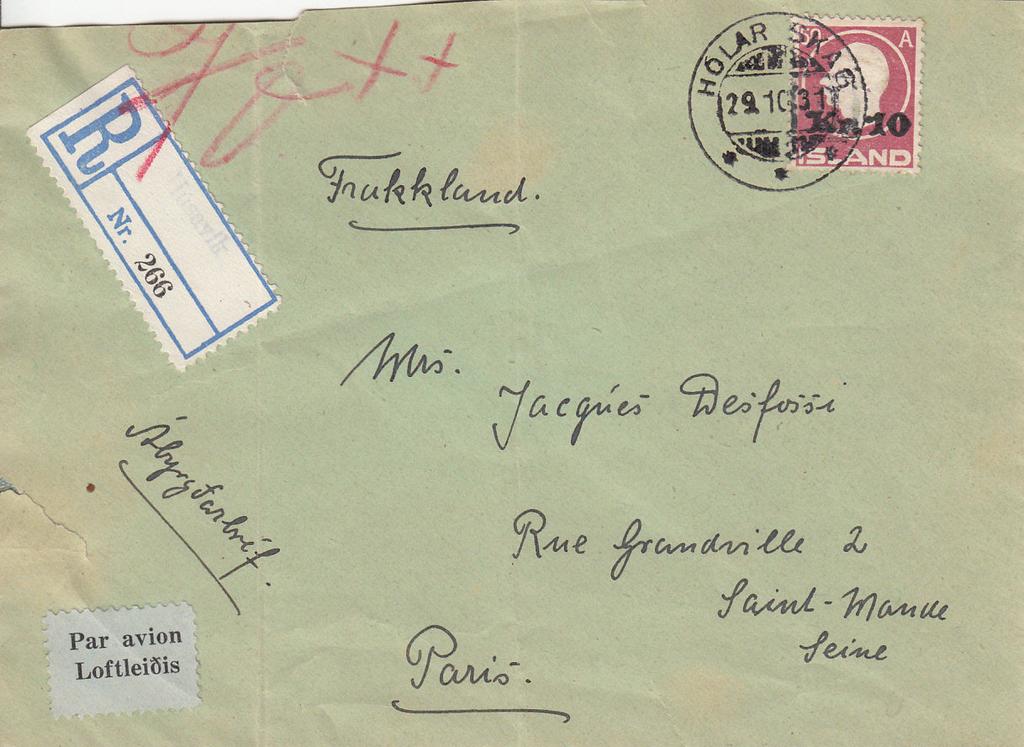 HÓLAR SKAG
29.10.31
50 A
Kr. 10
ISLAND
R
Nr. 266
Frakkland.
Mrs.
Jacqúes Desfossi
Ábyrgðarbréf.
Rue Grandville 2
Saint-Mande
Seine
Par avion
Loftleiðis
Paris.